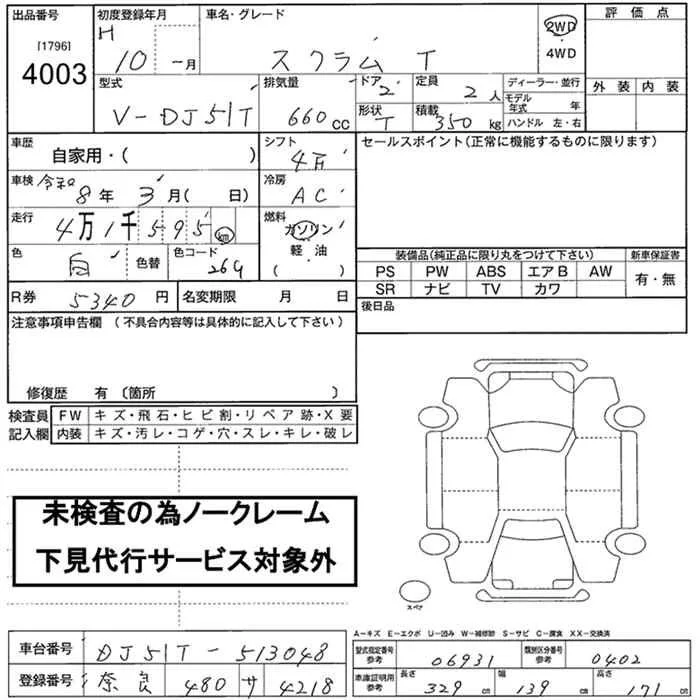 出品番号 初度登録年月 車名・グレード 評価点
[1796] H
4003 10 一月 スクラム T 2WD
4WD
型式 排気量 ドア 2 定員 2人 ディーラー・並行 外装 内装
V-DJ51T 660cc モデル年式 年
形状 T 積載 350kg ハンドル 左・右
車歴 シフト セールスポイント(正常に機能するものに限ります)
自家用・( ) 4万
車検 令和8年 3月( 日) 冷房 AC
走行 4万1千595km 燃料 ガソリン
軽・油
( )
色 白 色替 色コード 26G
装備品(純正品に限り丸をつけて下さい) 新車保証書
PS PW ABS エアB AW 有・無
SR ナビ TV カワ
R券 5340円 名変期限 月 日
後日品
注意事項申告欄(不具合内容等は具体的に記入して下さい)
修復歴 有(箇所 )
検査員 FW キズ・飛石・ヒビ割・リペア跡・X要
記入欄 内装 キズ・汚レ・コゲ・穴・スレ・キレ・破レ
未検査の為ノークレーム
下見代行サービス対象外
スペア
A-キズ E-エクボ U-凹み W-補修跡 S-サビ C-腐食 XX-交換済
車台番号 DJ51T-513048
登録番号 奈良 480 サ 4218
型式指定番号 参考 06931 類別区分番号 参考 0402
車庫証明用 参考 長さ 329cm 幅 139cm 高さ 171cm